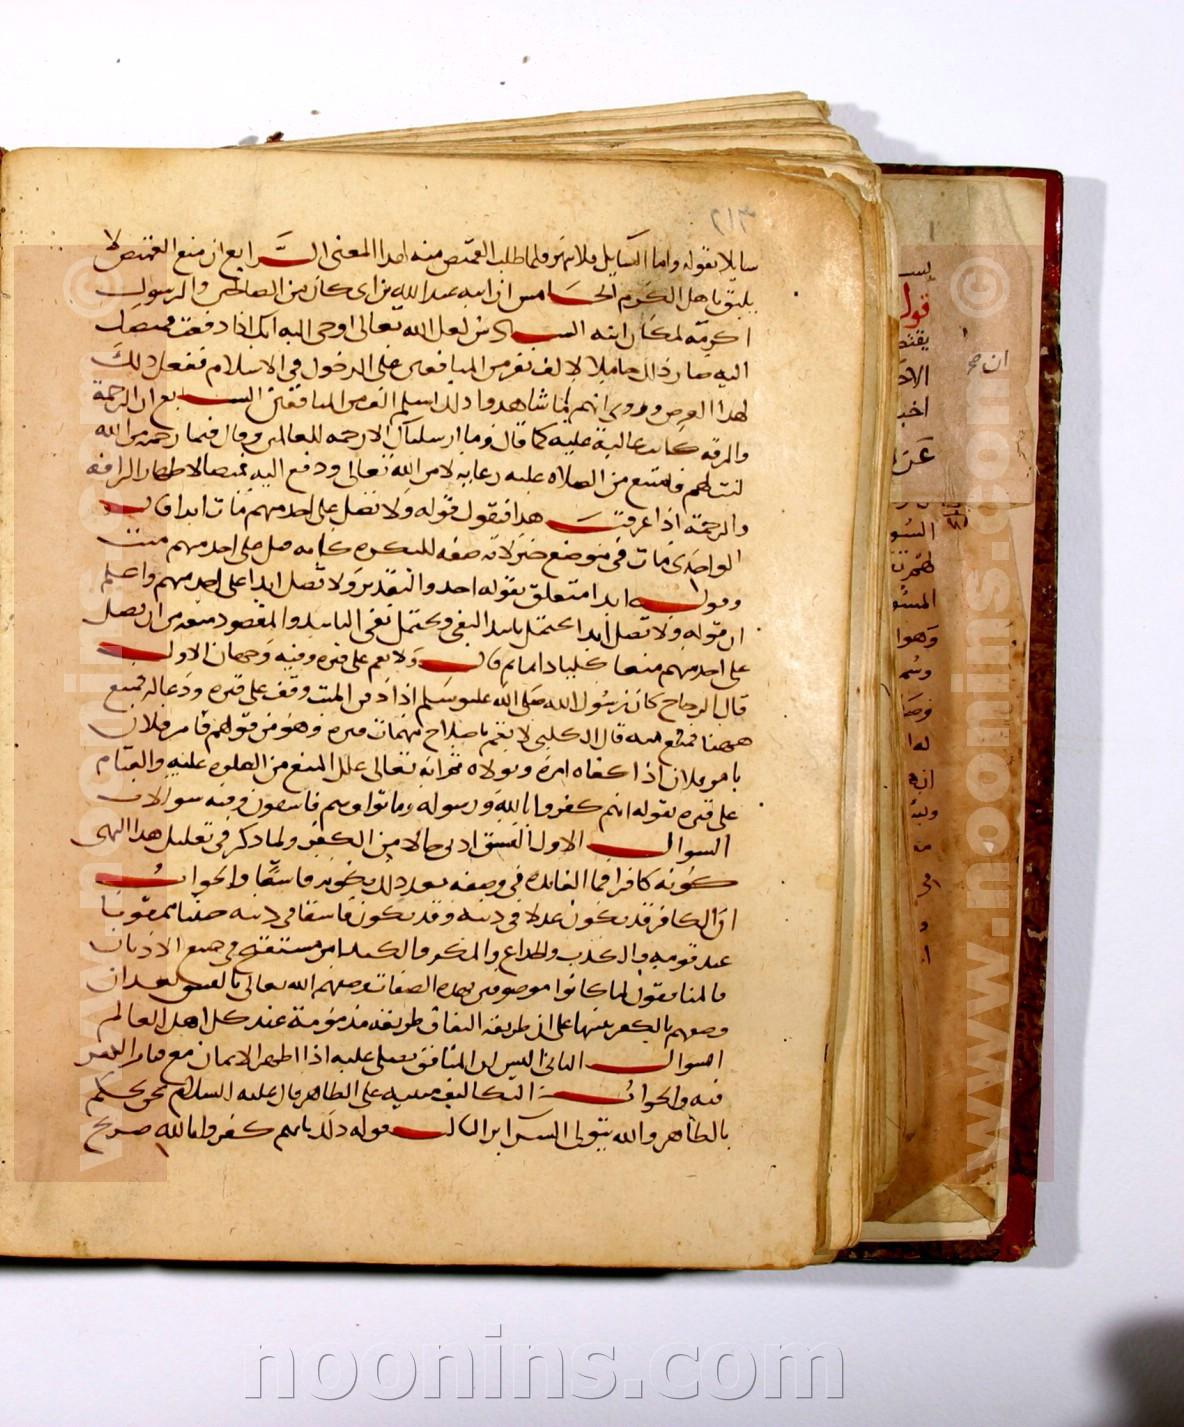 ٣١٢
سايلا بقوله واما السايل فلا تنهر فلما طلب القميص منه لهذا المعنى الرابع ان منع القميص لا
يليق باهل الكرم الخامس ان ابنه عبد الله بن ابى كان من الصالحين والرسول
اكرمه لمكان ابنه السادس لعل الله تعالى اوحى اليه انك اذا دفعت قميصك
اليه صار ذلك حاملا لالف نفر من المنافقين على الدخول فى الاسلام ففعل ذلك
لهذا الغرض وروى انهم لما شاهدوا ذلك اسلم الف من المنافقين السابع ان الرحمة
والرقه كانت غالبة عليه كما قال وما ارسلناك الا رحمه للعالمين وقال فبما رحمه من الله
لنت لهم فامتنع من الصلاه عليه رعايه لامر الله تعالى ودفع اليه قميصه لاظهار الرافه
والرحمة اذا عرفت هذا فنقول قوله ولا تصل على احد منهم مات ابدا قال
الواحدى مات فى موضع خبر لانه صفه للنكره كانه قيل على احد منهم ميت
وقوله ابدا متعلق بقوله احد والتقدير ولا تصل ابدا على احد منهم واعلم
ان قوله ولا تصل ابدا يحتمل تابيد النفى ويحتمل نفى التابيد والمقصود منعه من ان يصل
على احد منهم منعا كليا دايما ثم قال ولا تقم على قبره وفيه وجهان الاول
قال الزجاج كان رسول الله صلى الله عليه وسلم اذا دفن الميت وقف على قبره ودعا له فمنع
ههنا منه قال الكلبى لا تقم باصلاح مهمات قبره وهو من قولهم قام فلان
بامر فلان اذا كفاه امره وتولاه ثم انه تعالى علل المنع من الصلوه عليه والقيام
على قبره بقوله انهم كفروا بالله ورسوله وماتوا وهم فاسقون وفيه سوالات
السوال الاول الفسق ادنى حالا من الكفر ولما ذكر فى تعليل هذا النهى
كونه كافرا فما الفائده فى وصفه بعد ذلك بكونه فاسقا والجواب
ان الكافر قد يكون عدلا فى دينه وقد يكون فاسقا فى دينه خبيثا ممقوتا
عند قومه والكذب والخداع والمكر والكيد امر مستقبح فى جميع الاديان
فالمنافقون لما كانوا موصوفين بهذه الصفات وصفهم الله تعالى بالفسق بعد ان
وصفهم بالكفر تنبيها على ان طريقه النفاق طريقه مذمومة عند كل اهل العالم
السوال الثانى اليس ان المنافق يصلى عليه اذا اظهر الايمان مع قيام الكفر
فيه والجواب التكاليف مبنيه على الظاهر قال عليه السلام نحن نحكم
بالظاهر والله يتولى السراير الثالث قوله ذلك بانهم كفروا بالله صريح
قول
الا
اخبـ
ان صح
المسو
وهوا
www.noonins.com
©
www.noonins.com
©
noonins.com